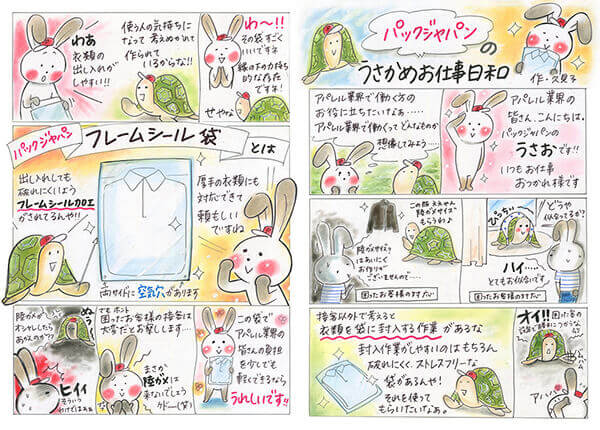 パックジャパンの
うさかめお仕事日和
作・久見子
アパレル業界の
皆さん、こんにちは。
パックジャパンの
うさおです!!
いつもお仕事
おつかれ様です
アパレル業界で働く方の
お役に立ちたいなぁ……
アパレル業界で働くってどんなものか
想像してみよう……
どうや
似合ってるか?
ハイ……
とてもお似合いです
困ったお客様のまずだい
この服 ええやん
陸ガメサイズ
もらうわ♪
陸ガメサイズは
あいにく
お作りが
ございませんので……
困ったお客様のまずだい
オイ!!
アハハ
接客以外で考えると
衣類を袋に封入する作業があるな
封入作業がしやすいのはもちろん
破れにくく、ストレスフリーな
袋があるんや!
それを使って
もらいたいなぁ。
わ〜!!
その袋すごく
いいですネ
縁の下の力持ち
的な存在
ですネ!
使う人の気持ちに
なって考えぬかれて
作られて
いるからな!!
せやな
わあ
衣類の
出し入れが
しやすい!!
パックジャパン
フレームシール袋
とは
出し入れしても
破れにくいよう
フレームシール加工
がされてるんや!!
厚手の衣類にも
対応できて
頼もしい
ですね
両サイドに空気穴があります
この袋で
アパレル業界の
皆さんの負担
を少しでも
軽くできるなら
うれしいです!!
でも ホント
困ったお客様の接客は
大変だとお察しします…
まさか
陸ガメは
来ないでしょう
ケドー(笑)
ぬぅ
陸のカメが
オシャレしたら
あかんのか??
ヒイィ
そういう
わけでは…